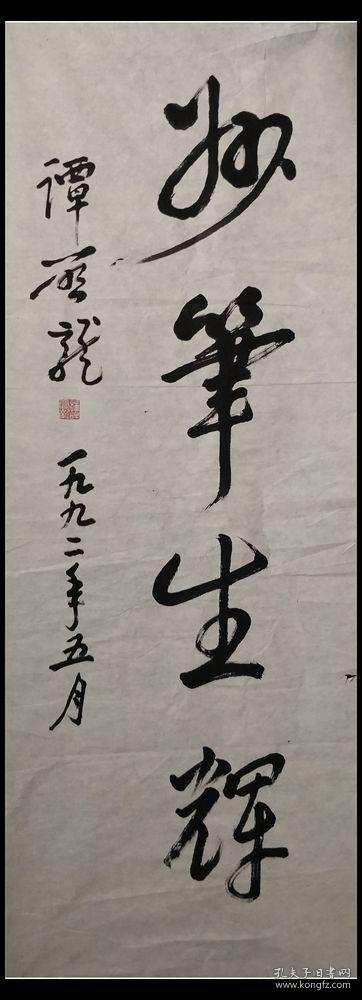 妙筆生輝
譚啓龍
一九九二年五月
孔夫子旧书网
www.kongfz.com